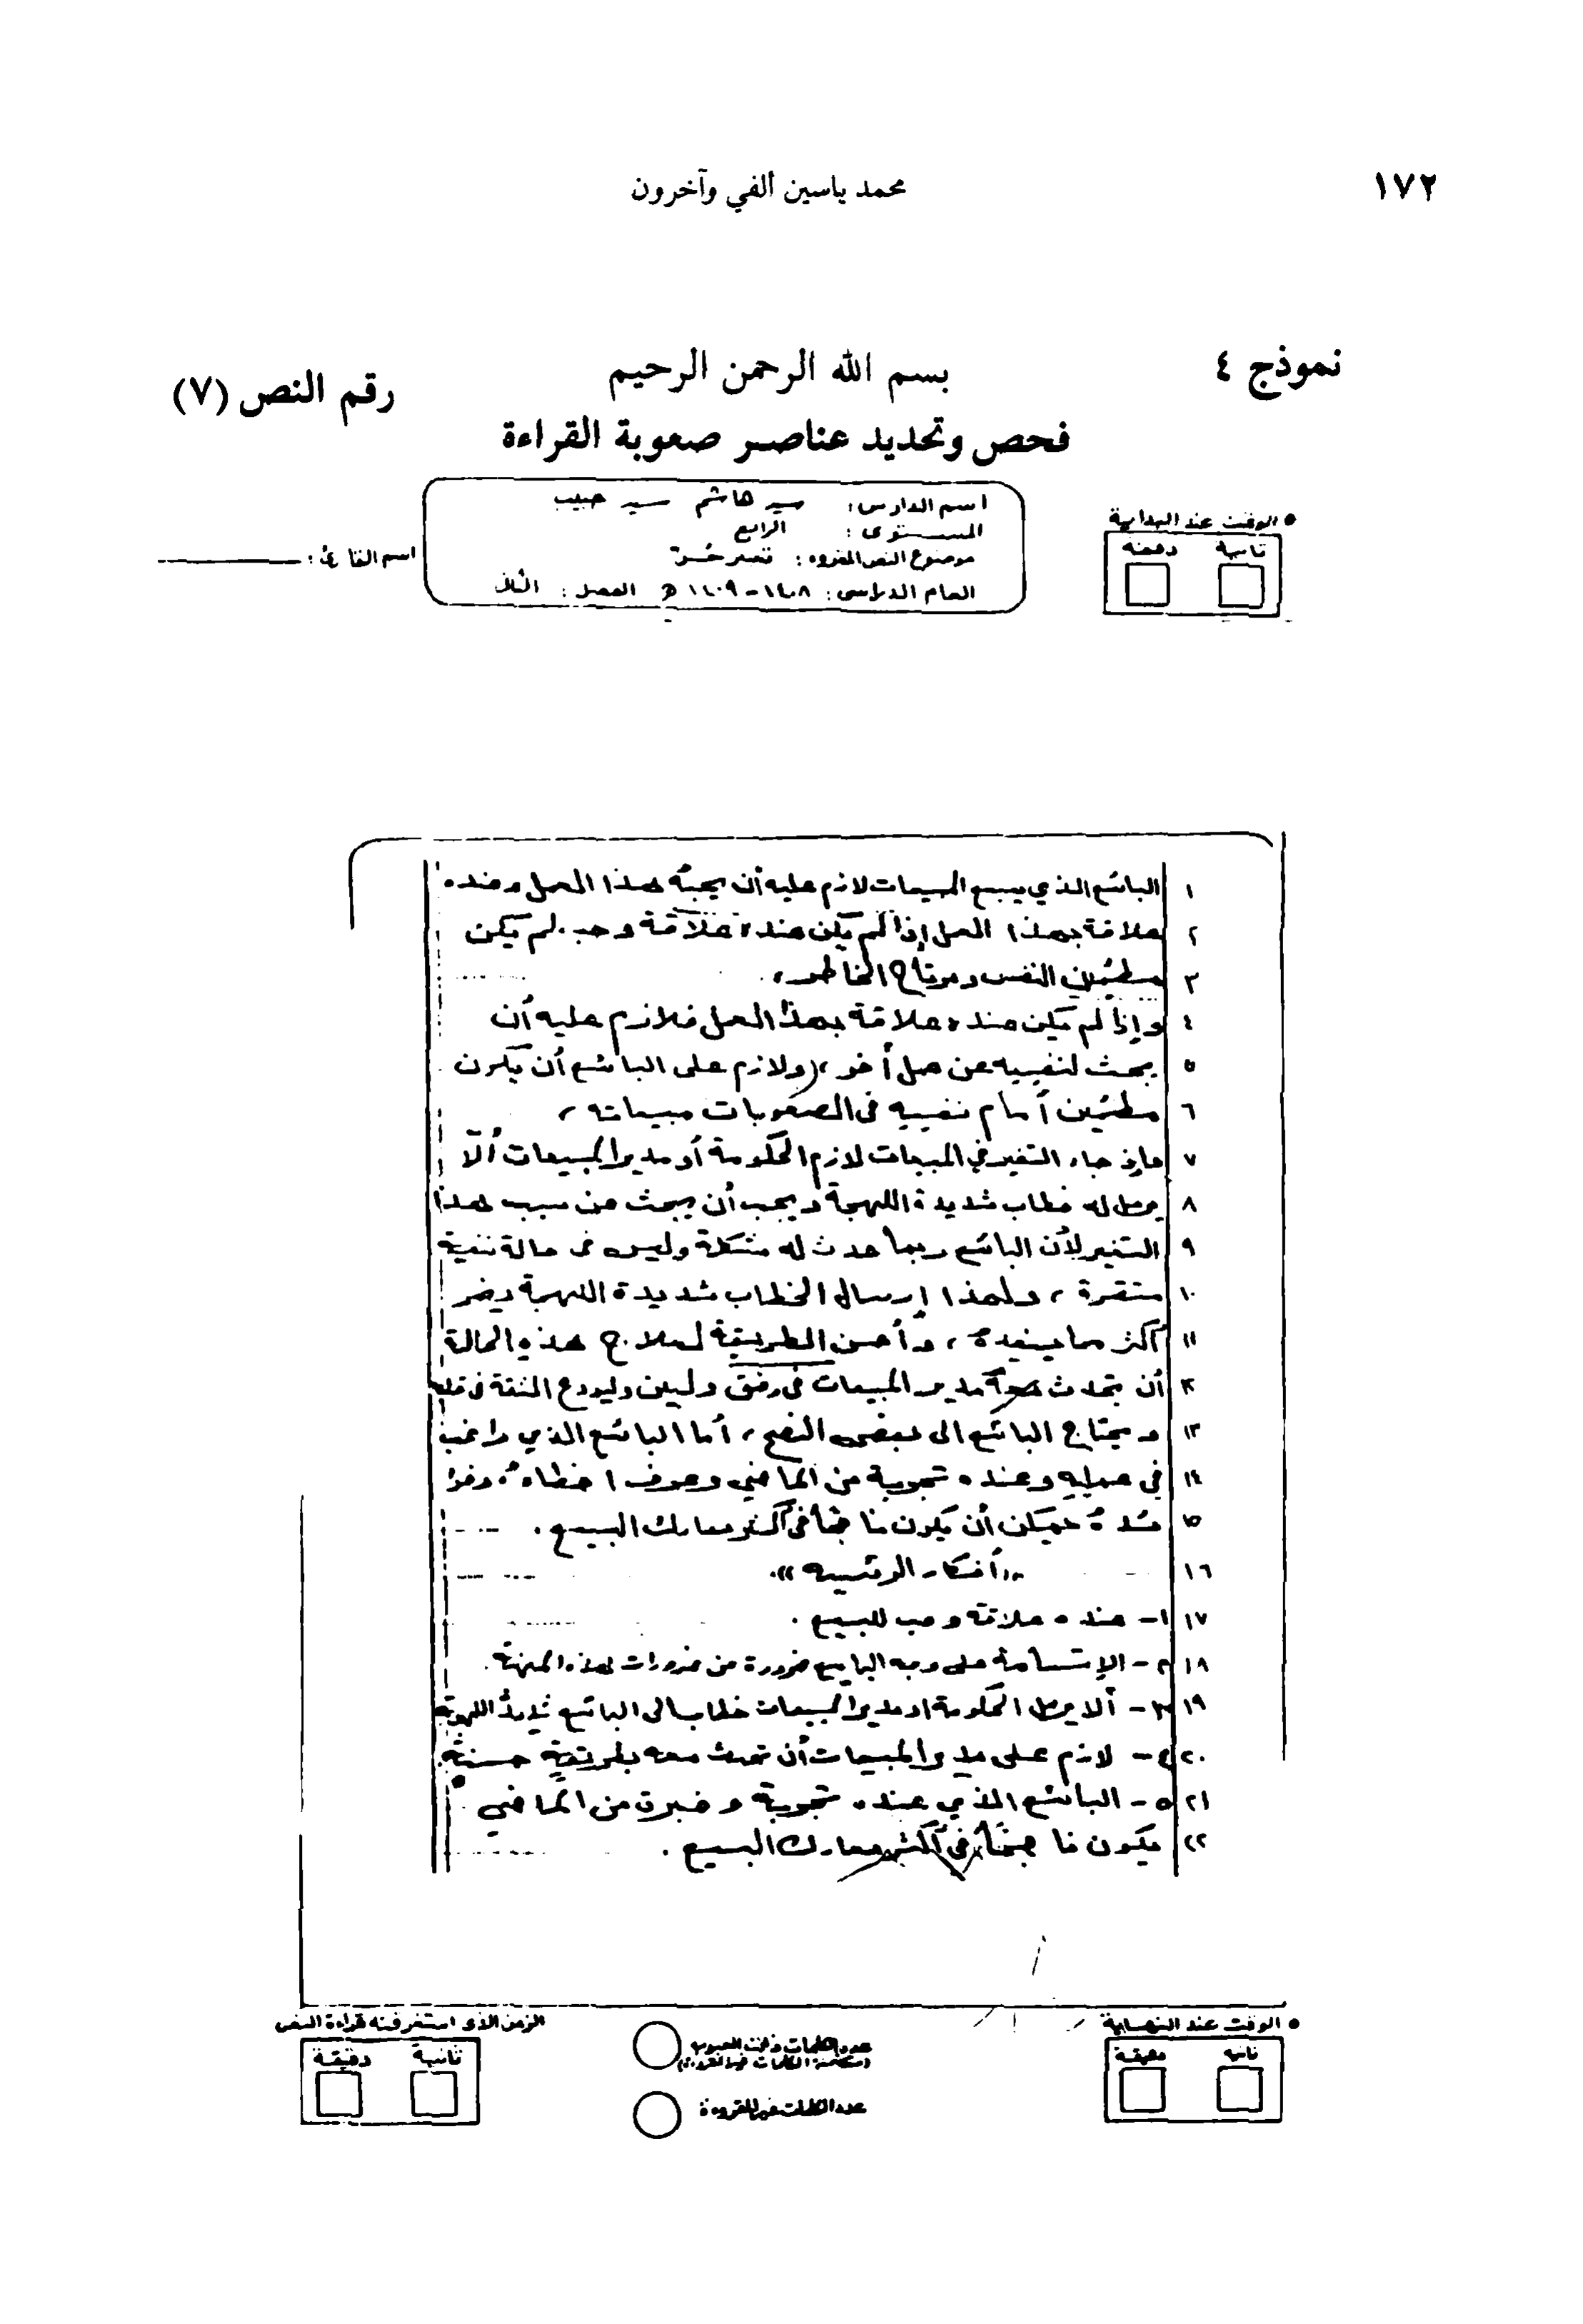 ١٧٢
محمد ياسين ألفي وآخرون
نموذج ٤
بسم الله الرحمن الرحيم
رقم النص (٧)
فحص وتحديد عناصر صعوبة القراءة
اسم الدارس: سيد هاشم سيد حبيب
المستوى: الرابع
موضوع النص المقروء:
العام الدراسي: ١٤٠٨-١٤٠٩ هـ الفصل: الثاني
اسم القارئ:
• الوقت عند البداية
ثانية دقيقة
١ البائع الذي يبيع المبيعات لازم عليه أن يحبّه لهذا العمل وعنده
٢ علاقة بهذا العمل إذا لم يكن عنده علاقة وحب. لم يكن
٣ مطمئين النفس ومرتاح الخاطر،
٤ وإذا لم يكن عنده علاقة بهذا العمل فلازم عليه أن
٥ يبحث لنفسيه عن عمل أخر، (ولازم على البائع أن يكون
٦ مطمئين أمام نفسيه في الصعوبات مبيعاته،
٧ جاء التغير في المبيعات لازم الحكومة أو مدير المبيعات ألّا
٨ يرسل له خطاب شديدة اللهجة ويجب أن يبحث عن سبب لهذا
٩ التغير لأن البائع ربما حدث له مشكلة وليس في حالة نفسية
١٠ مستقرة، ولهذا إرسال الخطاب شديدة اللهجة يضر
١١ أكثر مما يفيده، وأحسن الطريقة لعلاج هذه الحالة
١٢ أن يتحدث مدير المبيعات في رفق ولين وليودع الثقة في
١٣ ويحتاج البائع الى بعض النصح، أما البائع الذي
١٤ في عمله وعنده تجربة من الماضي وعرف اخطاءه
١٥ أن يكون ناجحًا في أكثر معارك البيع.
١٦ «أفكار الرئسيه».
١٧ ١- عنده علاقة وحب للبيع.
١٨ ٢- الإبتسامة على وجه البايع ضرورة من ضرورات لهذه المهنة.
١٩ ٣- ألا يرسل الحكومة او مدير المبيعات خطاب الى البائع شديدة اللهجة
٢٠ ٤- لازم على مدير المبيعات أن تحدث معه بطريقة حسنة.
٢١ ٥- البائع الذي عنده تجربة وخبرة من الماضي
٢٢ يكون ناجحًا في أكثر معارك البيع.
• الوقت عند النهاية
ثانية دقيقة
عدد الكلمات غير المقروءة
الزمن الذى استغرقته قراءة النص
ثانية دقيقة